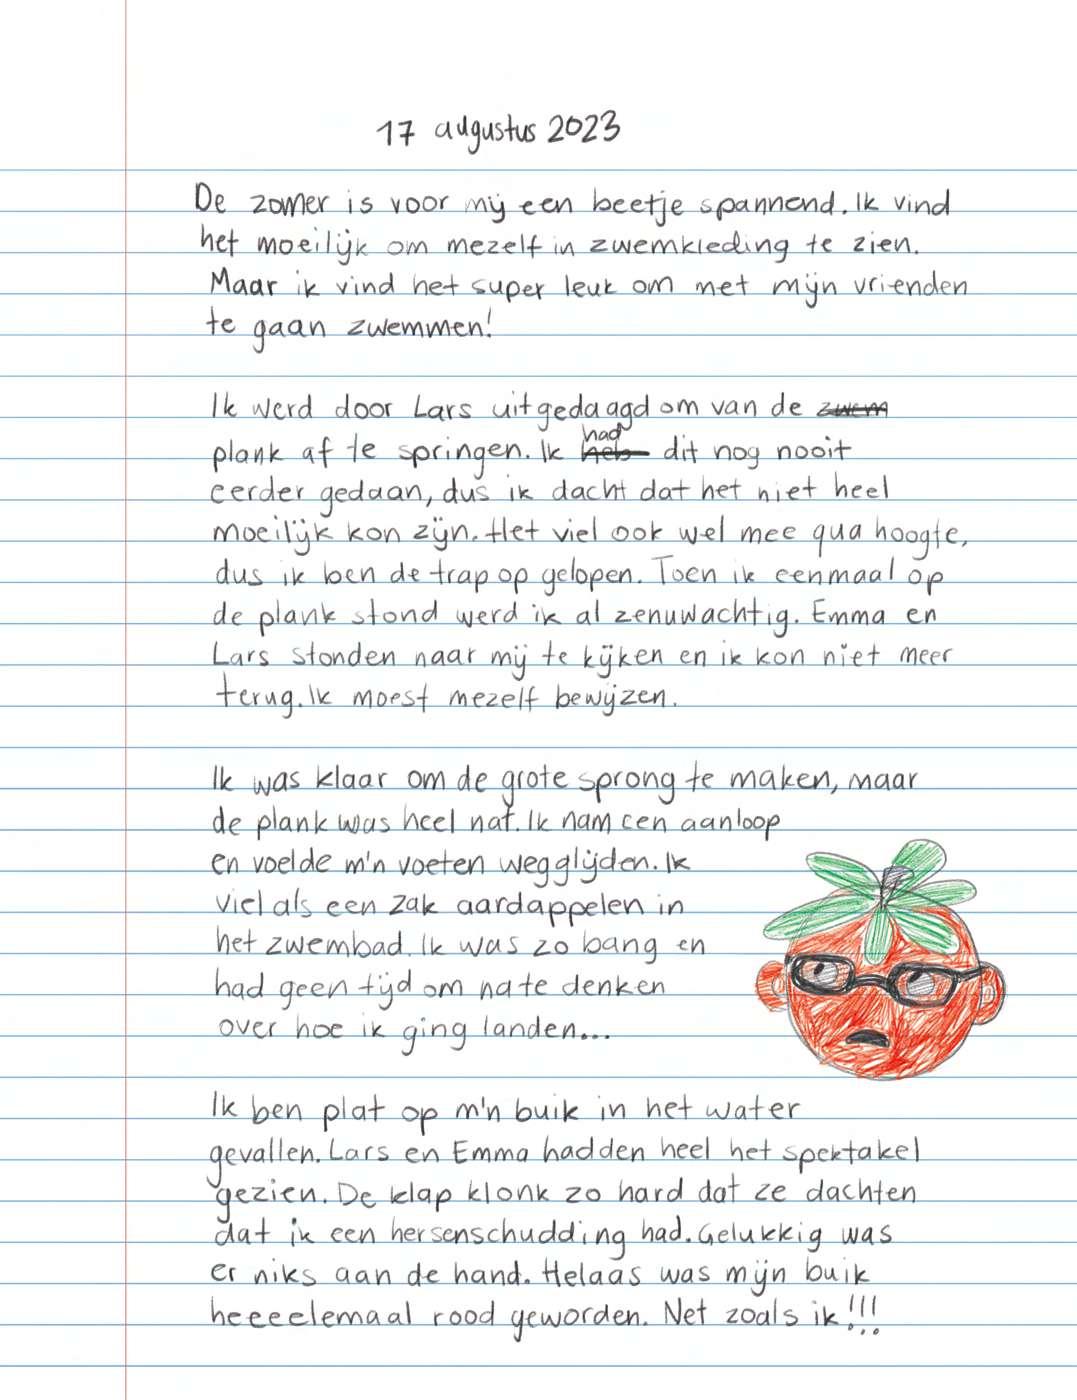 17 augustus 2023
De zomer is voor mij een beetje spannend. Ik vind
het moeilijk om mezelf in zwemkleding te zien.
Maar ik vind het super leuk om met mijn vrienden
te gaan zwemmen!
Ik werd door Lars uitgedaagd om van de zwem
plank af te springen. Ik had dit nog nooit
eerder gedaan, dus ik dacht dat het niet heel
moeilijk kon zijn. Het viel ook wel mee qua hoogte,
dus ik ben de trap op gelopen. Toen ik eenmaal op
de plank stond werd ik al zenuwachtig. Emma en
Lars stonden naar mij te kijken en ik kon niet meer
terug. Ik moest mezelf bewijzen.
Ik was klaar om de grote sprong te maken, maar
de plank was heel nat. Ik nam een aanloop
en voelde m'n voeten wegglijden. Ik
viel als een zak aardappelen in
het zwembad. Ik was zo bang en
had geen tijd om na te denken
over hoe ik ging landen...
Ik ben plat op m'n buik in het water
gevallen. Lars en Emma hadden heel het spektakel
gezien. De klap klonk zo hard dat ze dachten
dat ik een hersenschudding had. Gelukkig was
er niks aan de hand. Helaas was mijn buik
heeeelemaal rood geworden. Net zoals ik!!!